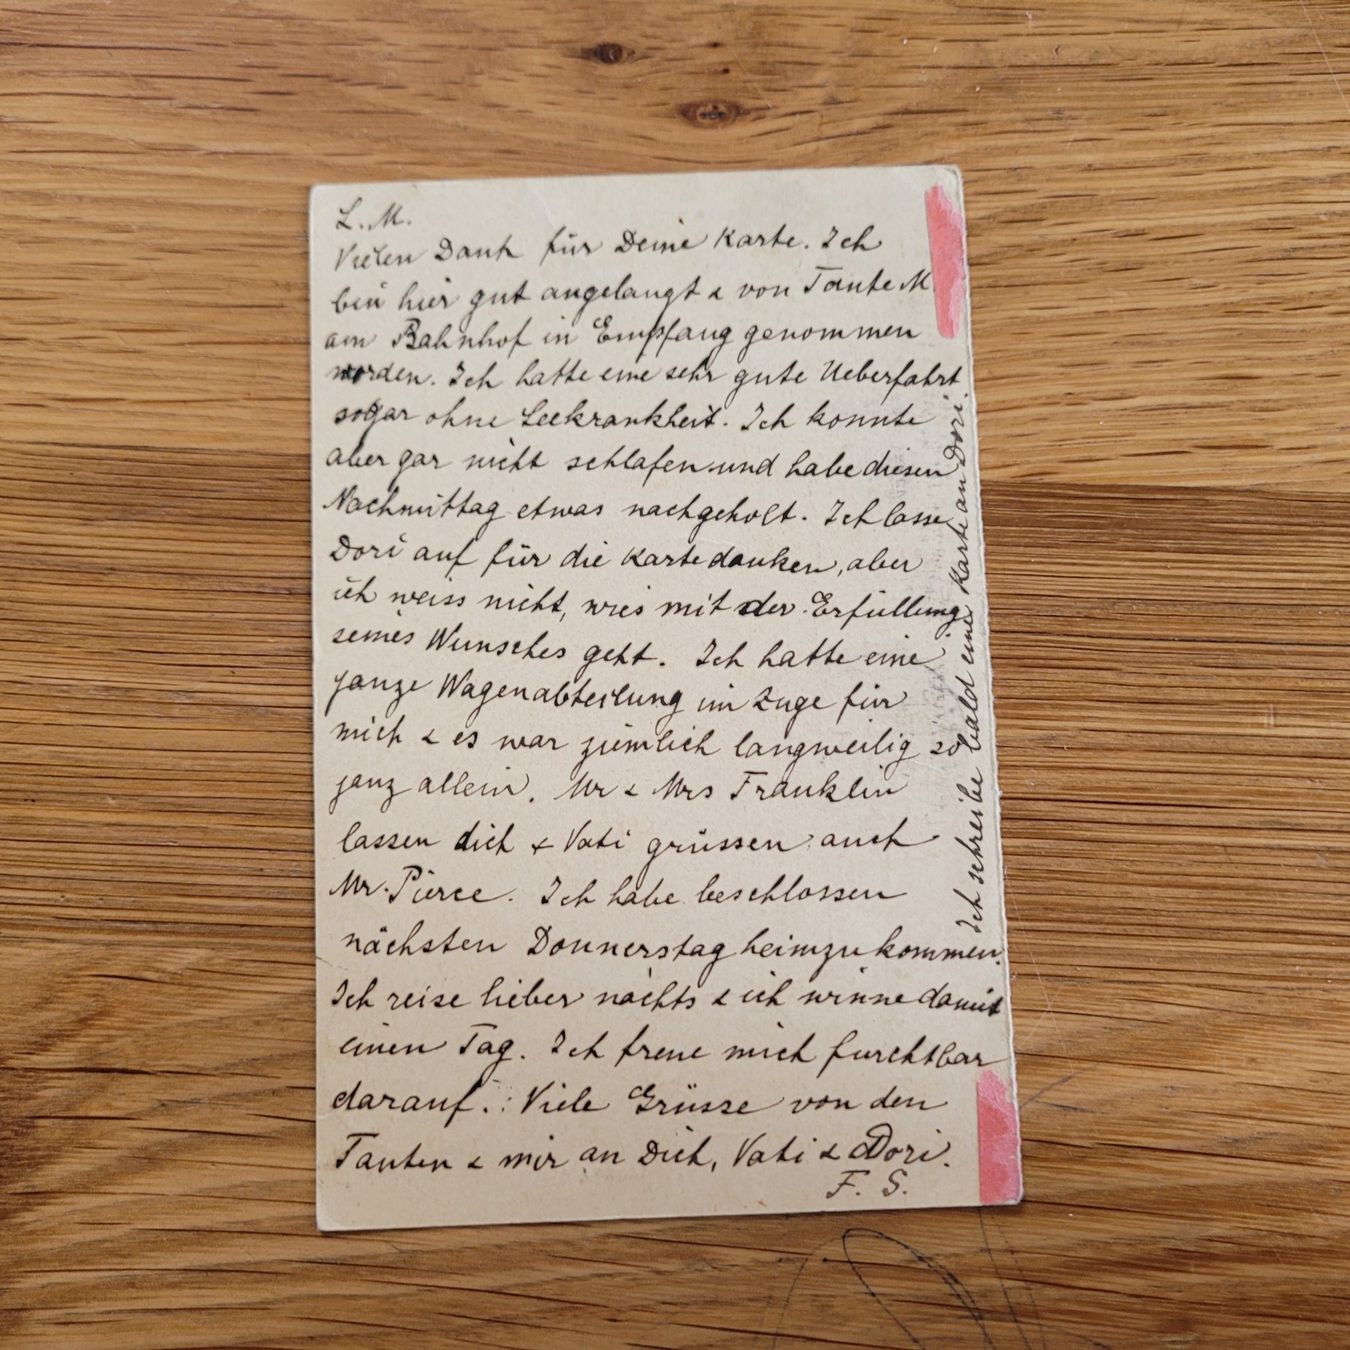 L. M.
Vielen Dank für Deine Karte. Ich
bin hier gut angelangt & von Tante M
am Bahnhof in Empfang genommen
worden. Ich hatte eine sehr gute Ueberfahrt
sogar ohne Seekrankheit. Ich konnte
aber gar nicht schlafen und habe diesen
Nachmittag etwas nachgeholt. Ich lasse
Dori auf für die Karte danken, aber
ich weiss nicht, wies mit der Erfüllung
seines Wunsches geht. Ich hatte eine
ganze Wagenabteilung im Zuge für
mich & es war ziemlich langweilig so
ganz allein. Mr & Mrs Franklin
lassen dich & Vati grüssen auch
Mr. Pierce. Ich habe beschlossen
nächsten Donnerstag heimzukommen.
Ich reise lieber nachts & ich winne damit
einen Tag. Ich freue mich furchtbar
darauf. Viele Grüsse von den
Tanten & mir an Dich, Vati & Dori.
F. S.
Ich schreibe bald eine Karte an Dori.